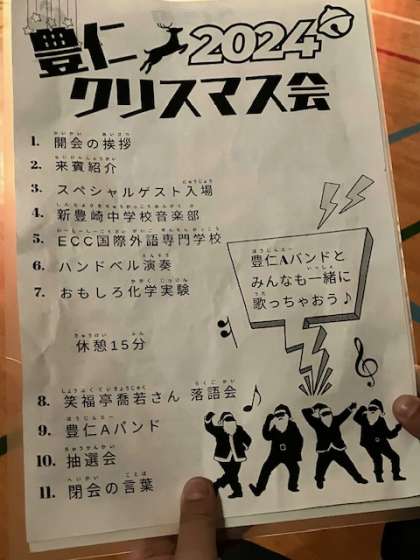 豊仁 2024
クリスマス会
1. 開会の挨拶
2. 来賓紹介
3. スペシャルゲスト入場
4. 新豊崎中学校音楽部
5. ECC国際外語専門学校
6. ハンドベル演奏
7. おもしろ化学実験
豊仁Aバンドと
みんなも一緒に
歌っちゃおう♪
休憩15分
8. 笑福亭喬若さん 落語会
9. 豊仁Aバンド
10. 抽選会
11. 閉会の言葉